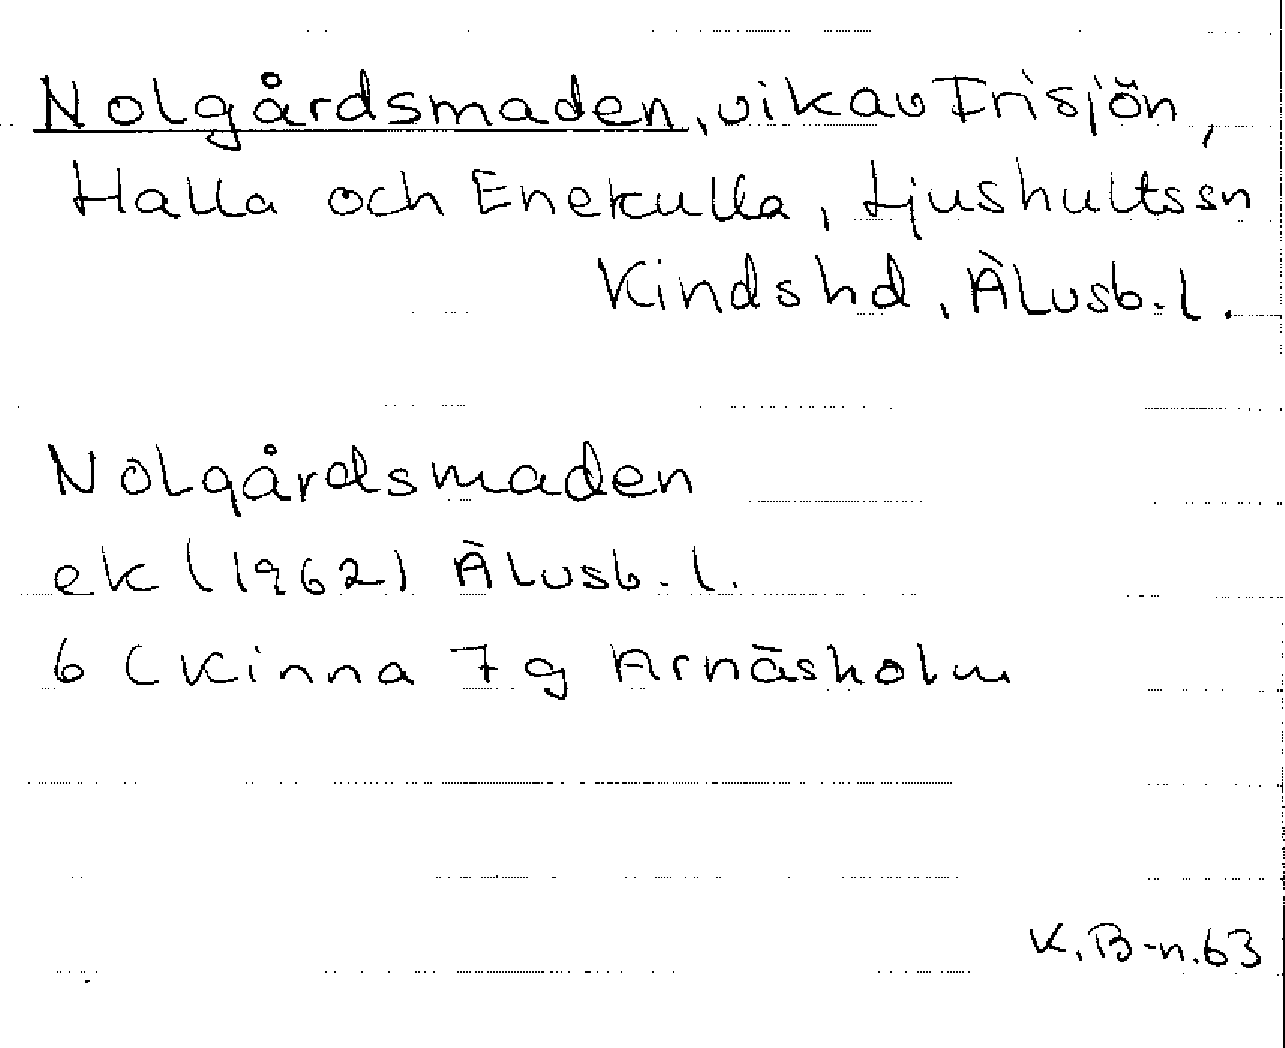 Nolgårdsmaden, vik av Frisjön,
Halla och Enekulla, Ljushults sn
Kinds hd, Älvsb. l.
Nolgårdsmaden
ek (1962) Älvsb. l.
6 (Kinna 7 g Arnäsholm
K. B-n. 63